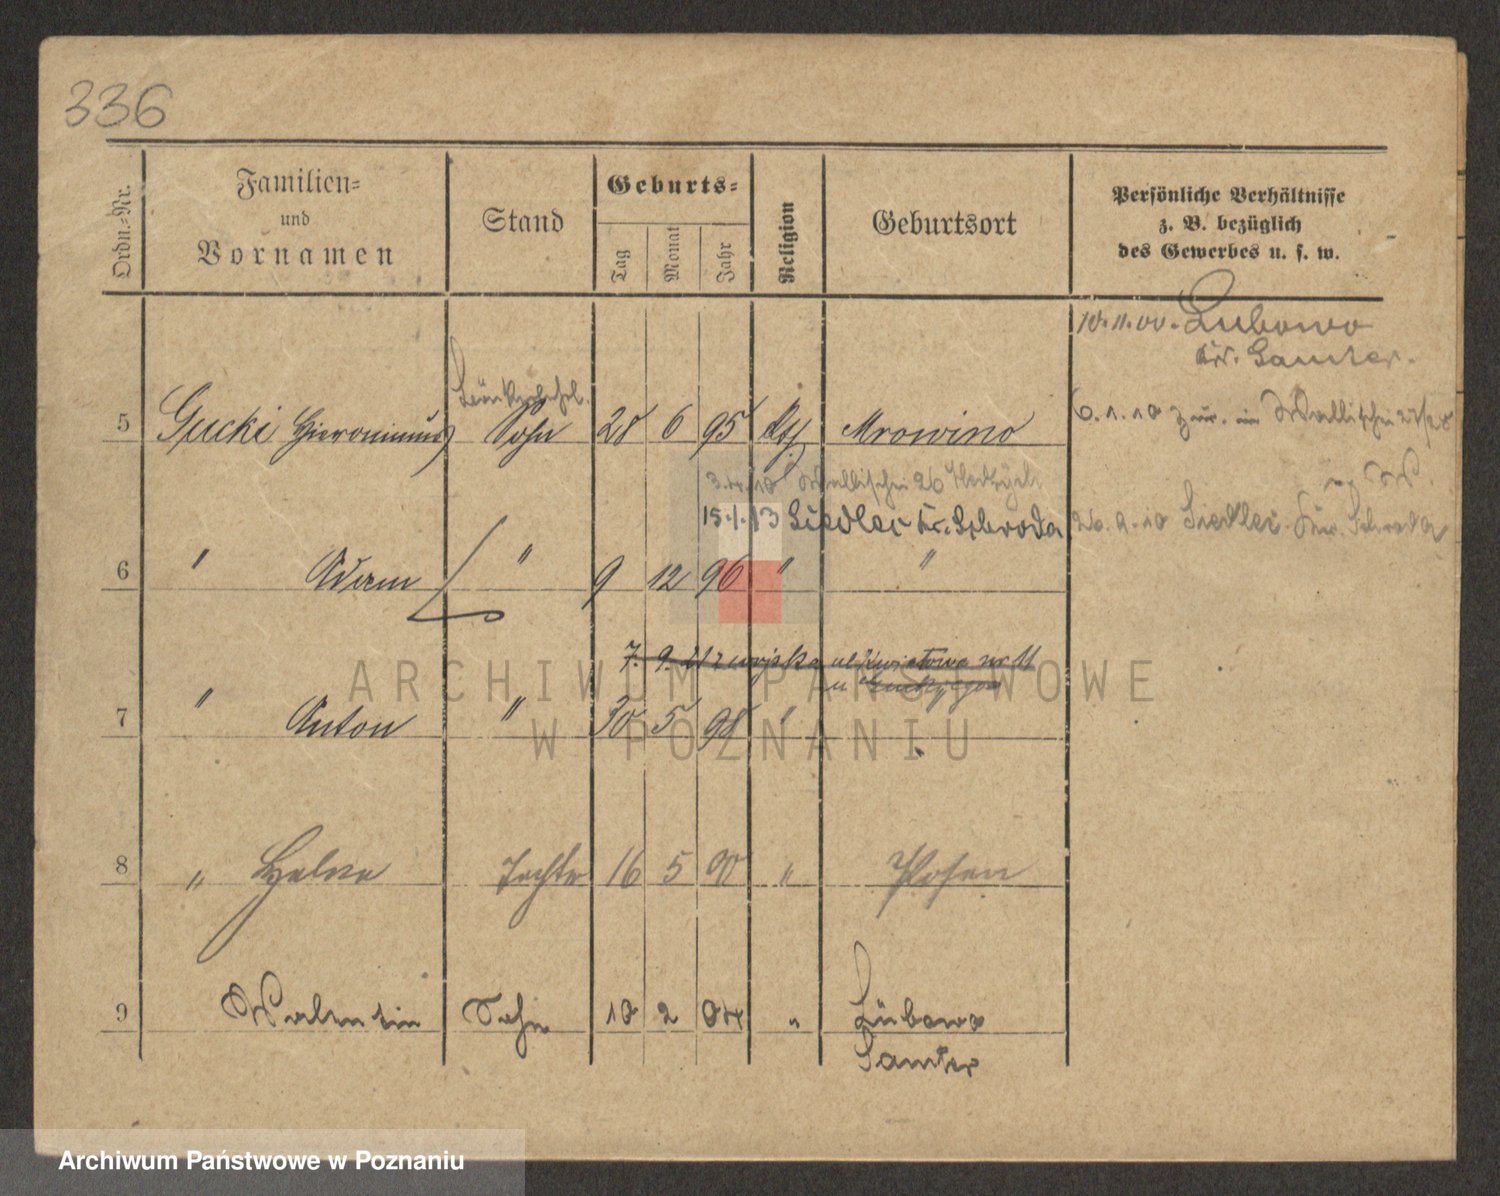 336
Ordn.-Nr.
Familien-
und
Vornamen
Stand
Geburts-
Tag
Monat
Jahr
Religion
Geburtsort
Persönliche Verhältnisse
z. B. bezüglich
des Gewerbes u. s. w.
10.11.00. Lubowo
Kr. Samter.
5 Gucki Hieronimus Sohn 28 6 95 Kth Mrowino
6.1.10 zur. in Wallischei
Wallischei 26
15.1.13 Siedlec Kr. Schroda
26.9.10 Siedlec Kr. Schroda
6 " Adam " 9 12 96 " "
7. 9. 21 z wojska ul Kwiatowa nr 11
u
7 " Anton " 30 5 98 "
8 " Helene Tochter 16 5 00 " Posen
9 Walentin Sohn 10 2 04 " Lubowo
Samter
ARCHIWUM PAŃSTWOWE
W POZNANIU
Archiwum Państwowe w Poznaniu